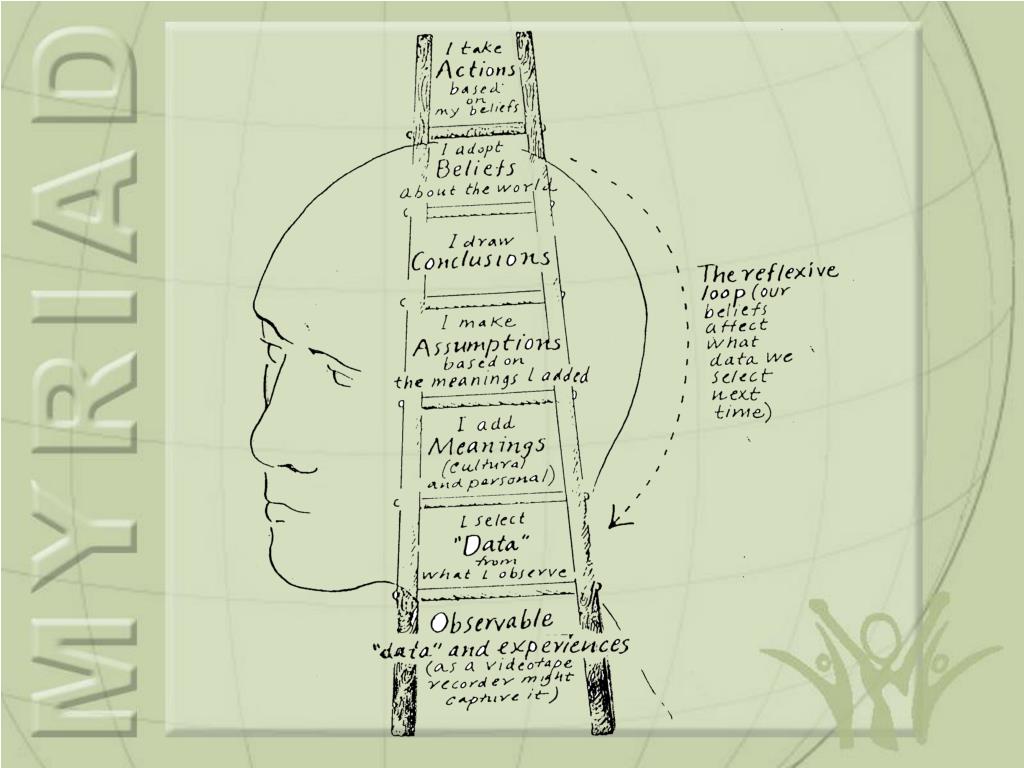 MYRIAD
I take
Actions
based
on
my beliefs
I adopt
Beliefs
about the world
I draw
Conclusions
I make
Assumptions
based on
the meanings I added
I add
Meanings
(cultural
and personal)
I select
"Data"
from
what I observe
Observable
"data" and experiences
(as a videotape
recorder might
capture it)
The reflexive
loop (our
beliefs
affect
what
data we
select
next
time)